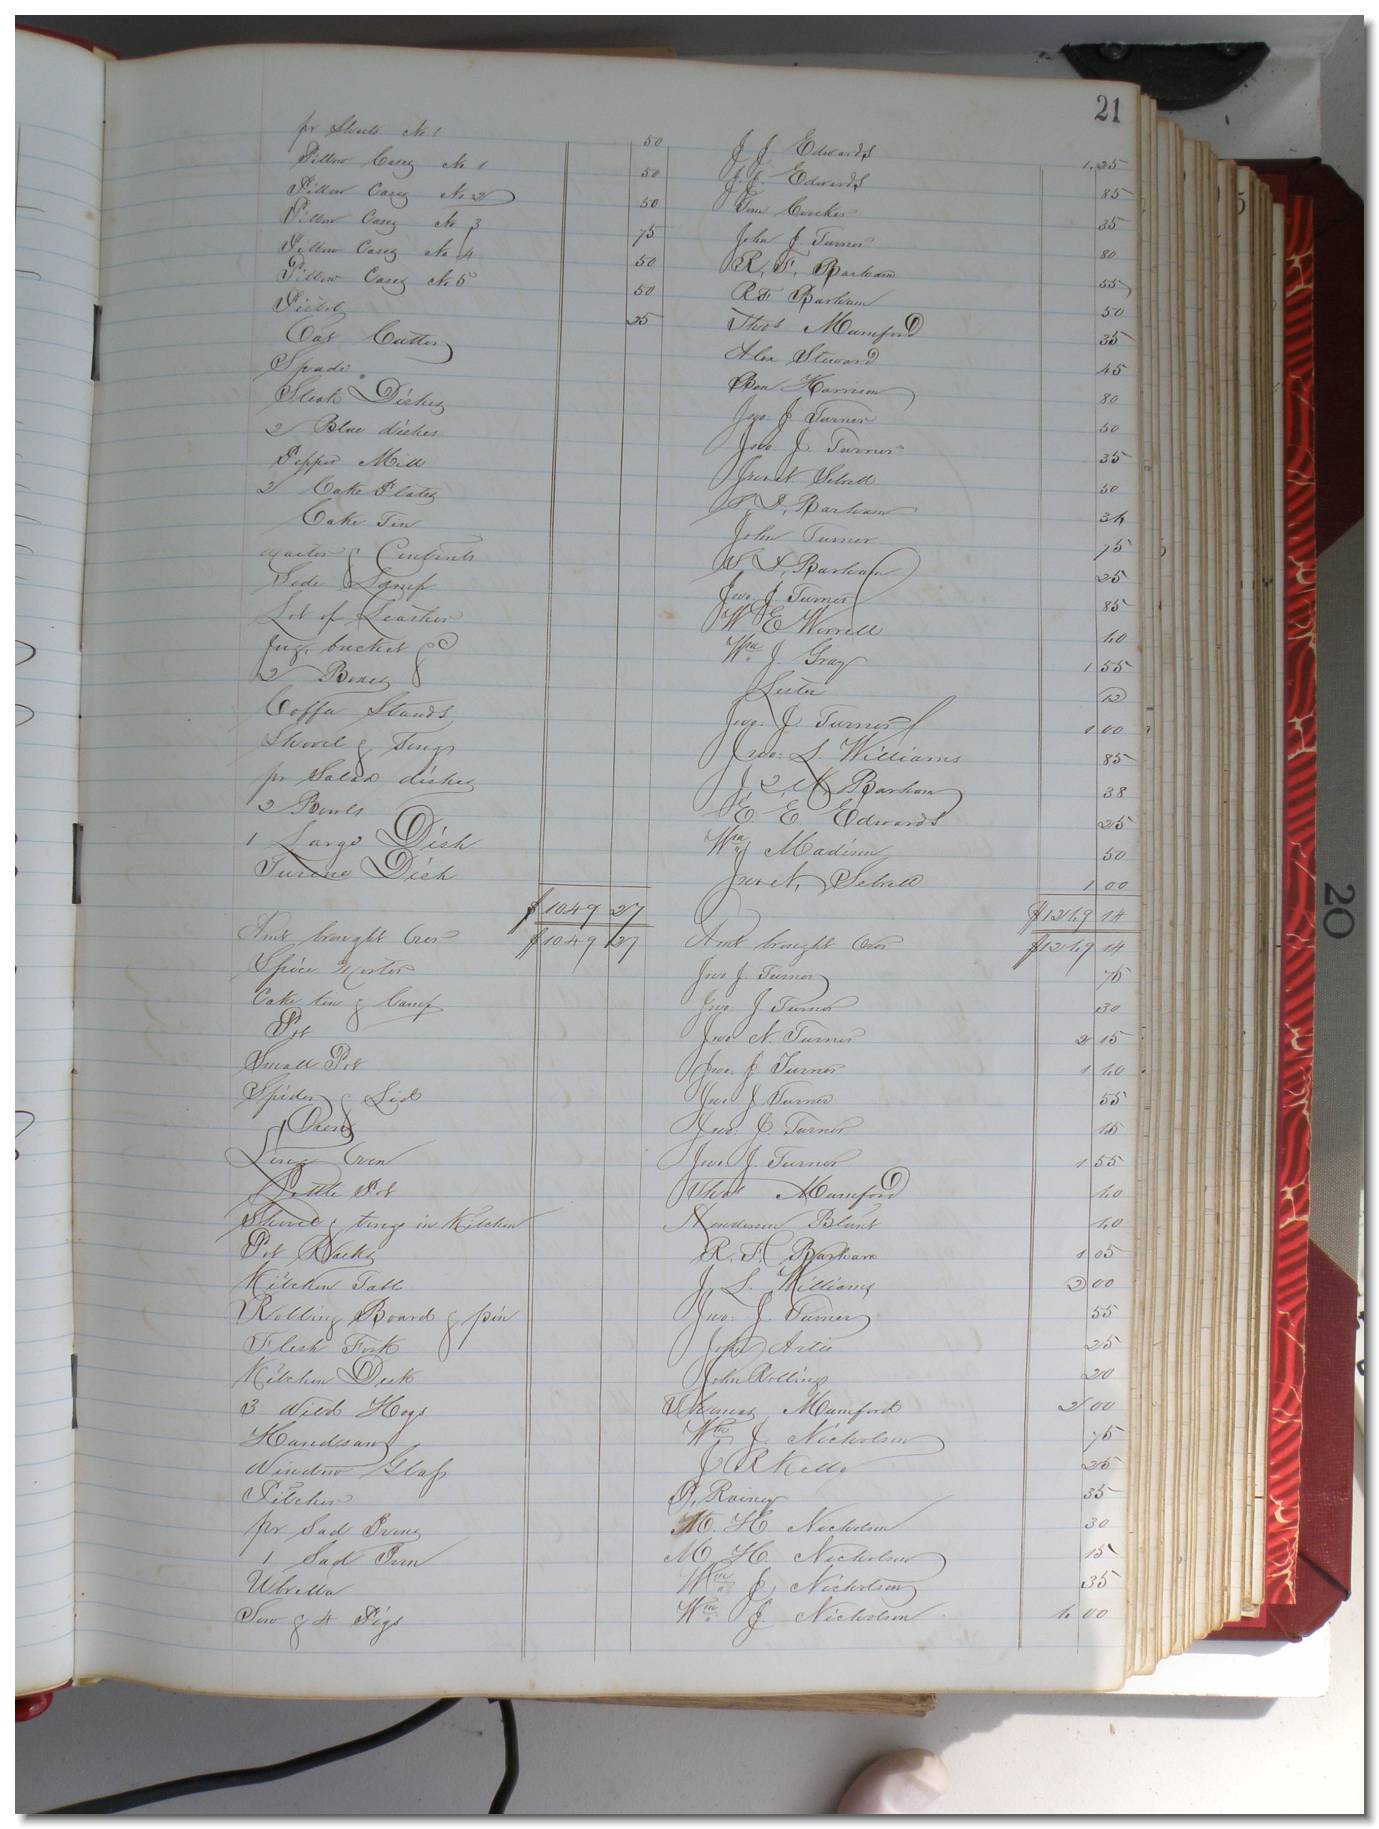 21
pr Sheets No 1 50 J J Edwards 1,25
Pillow Casey No 1 50 J. J. Edwards 85
Pillow Casey No 2 50 Tom 35
Pillow Casey No 3 75 John J. Turner 80
Pillow Casey No 4 50 R. F. Barham 55
Pillow Casey No 5 50 R F Barham 50
25 Thos Mumford 35
Oat Cutter Alex Steward 45
Spade Ben Harrison 80
Steak Dishes Jno. J. Turner 50
2 Blue dishes Jno. J. Turner 35
Pepper Mill Jno N Sebrell 50
2 Cake Plates Barham
Cake Tin John Turner 75
& Contents Barham 25
Side Lamp Jno. J. Turner 85
Lot of Leather W E Worrell 60
Jug, bucket & Wm J Gray 1 55
2 Boxes Lister 12
Coffa Stands Jno. J. Turner 1 00
Shovel & Tongs Jno. S. Williams 85
pr Salad dishes Barham 38
2 Bowls E. E. Edwards 25
1 Large Dish Wm J Madison 50
Tureno Dish Jno N. Sebrell 1 00
$1049 27 $1269 14
Amt brought Over $1049 27 Amt brought Over $1269 14
Spice Morter Jno J. Turner 75
Cake tin & Lamp Jno J Turner 30
Pot Jno N. Turner 2 15
Small Pot Jno. J. Turner 1 60
Spider & Lid Jno J Turner 55
Oven Jno. J. Turner 15
Oven Jno J. Turner 1 55
Little Pot Thos Mumford 60
Shovel & tongs in Kitchen Henderson Blunt 60
Pot Racks R. F. Barham 1 05
Kitchen Table J. S. Williams 2 00
Rolling Board & pin Jno. J. Turner 55
Flesh Fork John Artis 25
Kitchen Desk John Rollings 20
3 Wild Hogs Thomas Mumford 2 00
Handsaw Wm J. Nicholson 75
Window Glass J R Kello 25
Pitcher P, Rainey 35
pr Sad Irons M. H. Nicholson 30
1 Sad Iron M. H. Nicholson 15
Ubrella Wm J, Nicholson 35
Sow & 4 Pigs Wm J. Nicholson 6 00
20